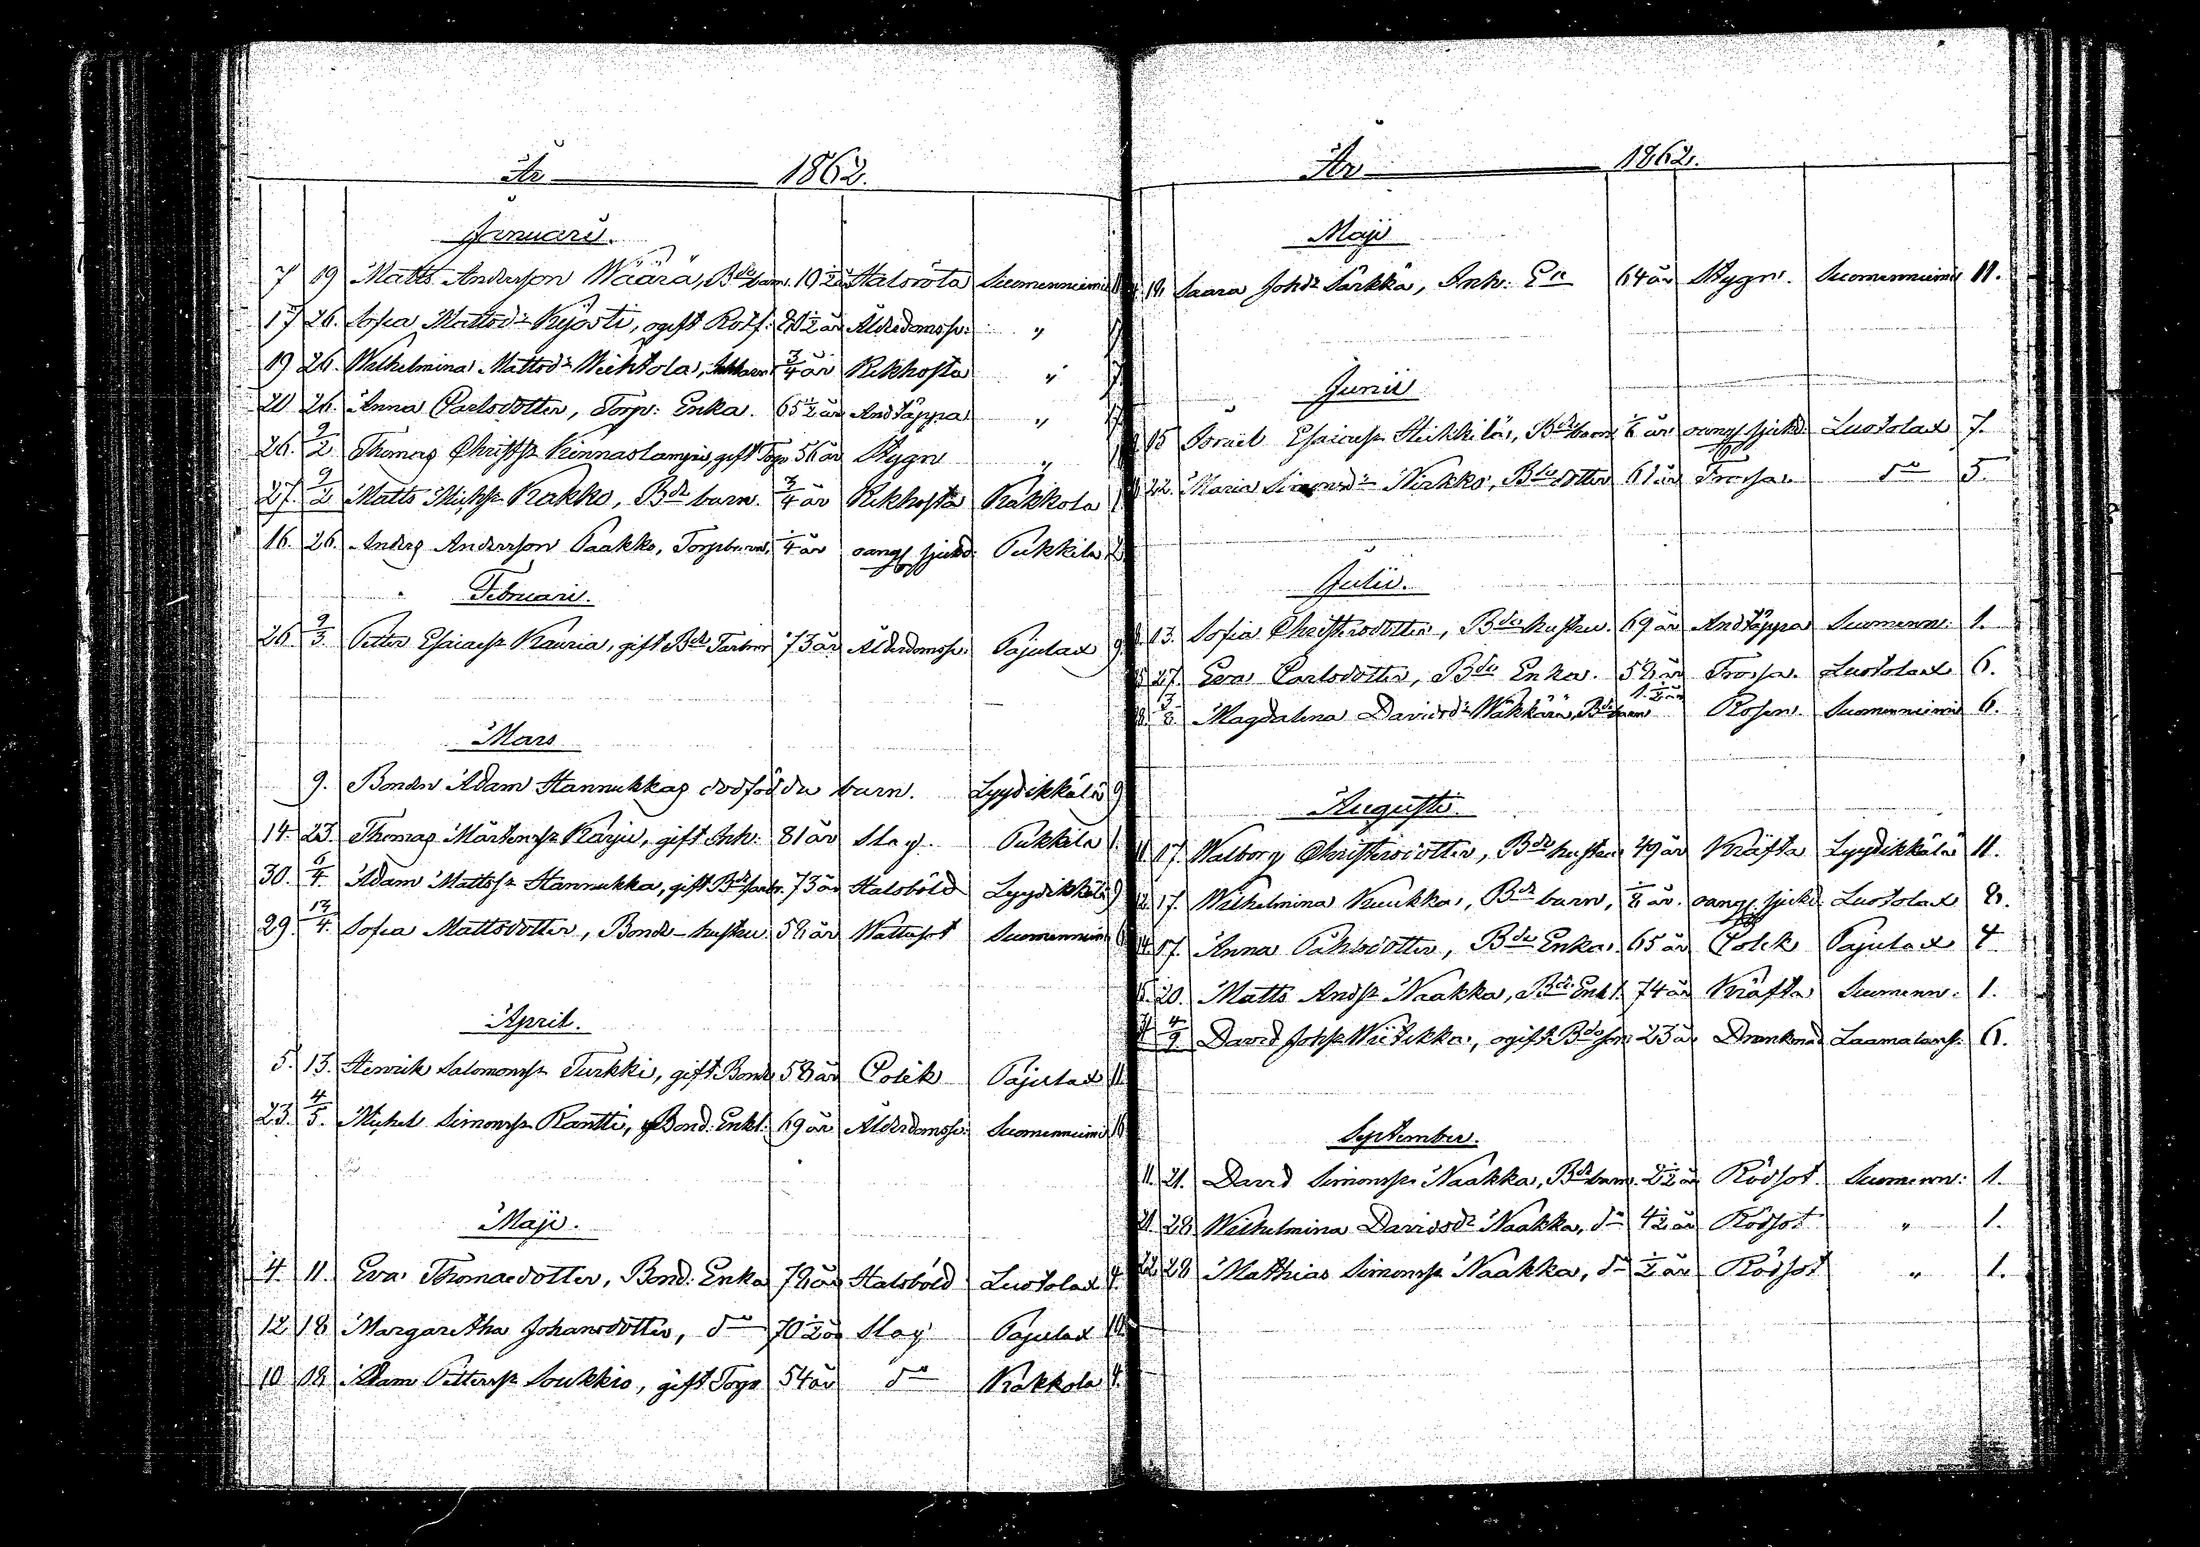 År 1862.
Januari.
7 19 Matts Andersson Wäärä, Bde barn. 10 1/2 år Halsröta Suomenniemi
17 26. Sofia Mattsdr Kyösti, ogift Rotf: 80 1/2 år Ålderdomssv: "
19 26. Wilhelmina Mattsdr Wichtola, 3/4 år Kikhosta "
20 26. Anna Carlsdotter, Torp: Enka. 65 1/2 år Andtäppa "
26. 9/2 Thomas Christss Kinnaslampi, gift Torp 56 år Stygn "
27. 9/2 Matts Michss Kakko, Bde barn. 3/4 år Kikhosta Kakkola 1
16. 26. Anders Andersson Paakko, Torpbarn, 1/4 år oangf sjukd Pukkila 2
Februari.
26. 9/3. Petter Esaiass Kauria, gift Bde Farbror 73 år Ålderdomssv: Pajulax 9
Mars
9. Bonden Adam Hannukkas dödfödda barn. Lyydikkälä 9
14. 23. Thomas Mårtenss Karju, gift Inh: 81 år Slag. Pukkila 1.
30. 6/4. Adam Mattss Hannukka, gift Bde farbr. 73 år Halsböld Lyydikkälä 9
29. 13/4. Sofia Mattsdotter, Bonde-hustru. 58 år Wattusot Suomenniemi
April.
5. 13. Henrik Salomonss Turkki, gift Bonde 58 år Colik Pajulax 11
23. 4/5. Michel Simonss Rantti, Bond: Enkl. 69 år Ålderdomssv: Suomenniemi
Maji.
4. 11. Eva Thomasdotter, Bond: Enka 78 år Halsböld Luotolax 4.
12 18 Margaretha Johansdotter, do 70 1/2 år Slag Pajulax 10
10 18 Adam Petterss Soukkio, gift Torp 54 år do Kakkola 4.
År 1862.
Maji
18. Saara Johdr Särkkä, Inh: En 64 år Stygn. Suomenniemi 11.
Junii
15 Israel Esaiass Heikkilä, Bde barn 1/6 år oangf sjukd. Luotolax 7.
22. Maria Simonsdr Kirkko, Bde dotter 61 år Trosja do 5.
Julii.
13. Sofia Christersdotter, Bde hustru. 69 år Andtäppa Suomenn: 1.
27. Eva Carlsdotter, Bde Enka. 58 år Trosja. Luotolax 6.
3/8. Magdalena Davidsdr Wäkkärä, Bde barn 1 1/2 år Rosen. Suomenniemi 6.
Augusti.
17. Walborg Christersdotter, Bde hustru 49 år Kräfta Lyydikkälä 11.
12 17. Wilhelmina Kuukka, Bde barn, 1/8 år. oangf. sjukd. Luotolax 8.
14 17. Anna Påhlsdotter, Bde Enka. 65 år Colik Pajulax 4
15 20. Matts Andss Naakka, Bde Enkl. 74 år Kräfta Suomenn: 1.
4/9 David Johss Wiitikka, ogift Bde son 23 år Drunknad Laamalansa: 6.
September.
11. 21. David Simonss Naakka, Bde barn. 2 1/2 år Rödsot Suomenn: 1.
21 28 Wilhelmina Davidsdr Naakka, do 4 1/2 år Rödsot " 1.
22 28 Matthias Simonss Naakka, do 1/2 år Rödsot " 1.